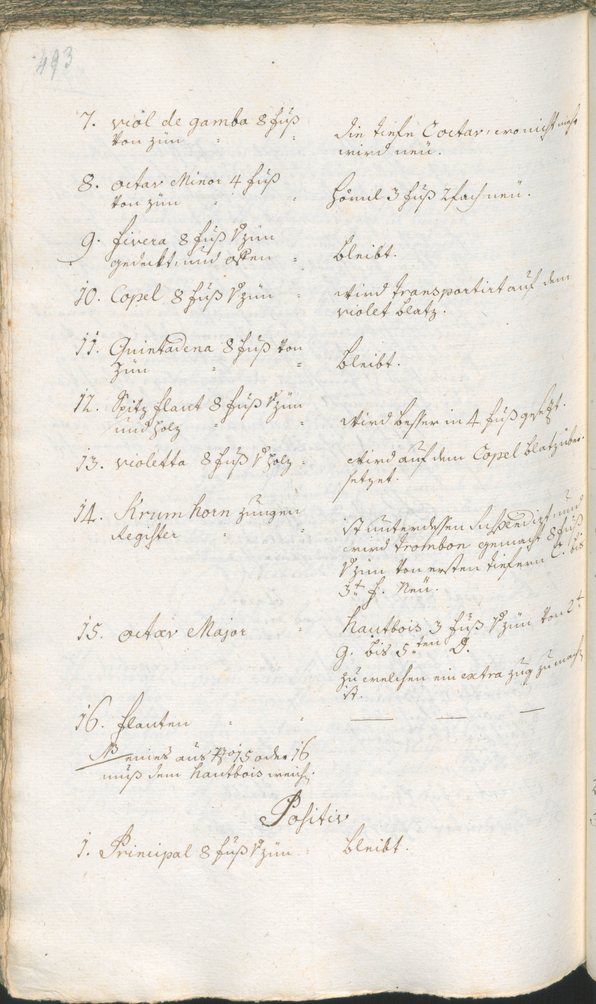 493
7. viol de gamba 8 fuß
von zün
die tiefe Coctav, wo nicht mehr
wird neü.
8. octav Minor 4 fuß
von zün
hörnl 3 fuß 2fach neü.
9. fivera 8 fuß v zün
gedeckt, und offen
bleibt.
10. Copel 8 fuß v zün
wird transportirt auf dem
violet blatz.
11. Quintadena 8 fuß von
zün
bleibt.
12. Spitz flaut 8 fuß v zün
und holz
wird besser in 4 fuß gesezt.
13. violetta 8 fuß v holz
wird auf dem Copel blatz über-
setzet.
14. Krumhorn zungen
Register
ist unterdessen suspendirt, und
wird trombon gemacht 8 fuß
v zün von ersten tiefern C. bis
3t f. Neü.
15. octav Major
hautbois 3 fuß v zün von 2t
G. bis 5ten D.
zu welchen ein extra zug zu mach.
ist.
16. flauten
NB eines aus No 15 oder 16
muß dem hautbois weich.
Positiv
1. Principal 8 fuß v zün
bleibt.